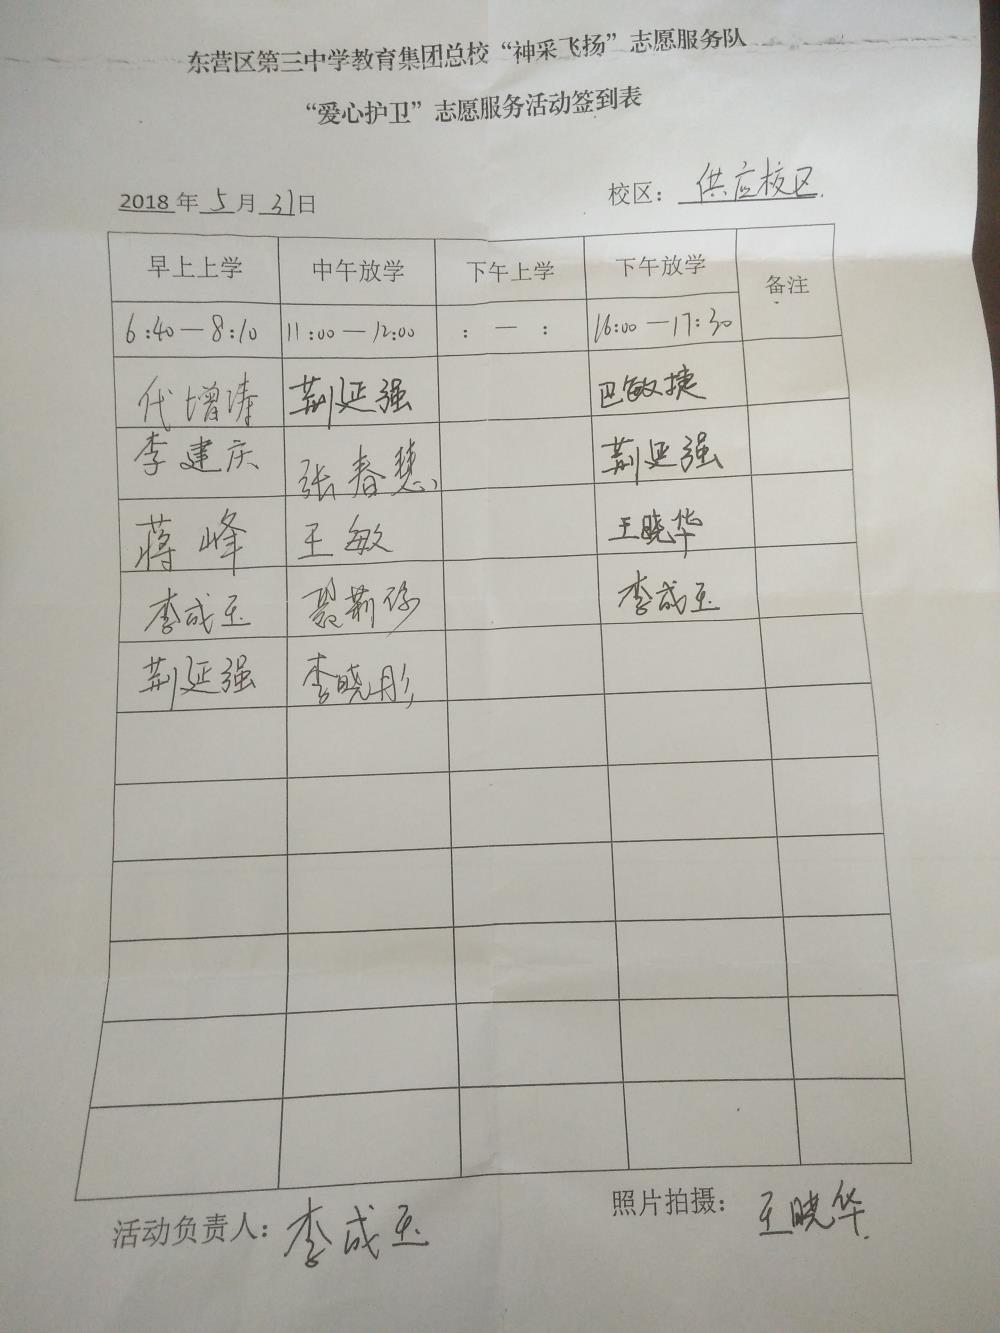 东营区第三中学教育集团总校“神采飞扬”志愿服务队
“爱心护卫”志愿服务活动签到表
2018年5月31日 校区：供应校区
早上上学 中午放学 下午上学 下午放学 备注
6:40—8:10 11:00—12:00 : — : 16:00—17:30
代增涛 荆延强 巴敏捷
李建庆 张春慧 荆延强
蒋峰 王敏 王晓华
李成玉 李成玉
荆延强 李晓彤
活动负责人：李成玉 照片拍摄：王晓华